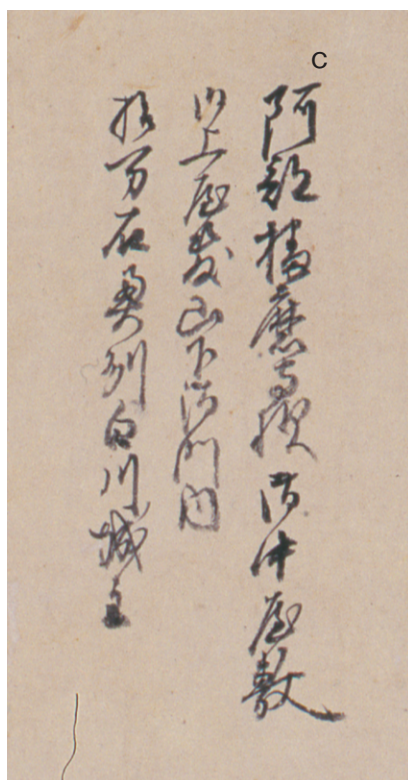 C
阿部播磨守様御中屋敷
御上屋敷山下御門内
拾万石奥州白川城主